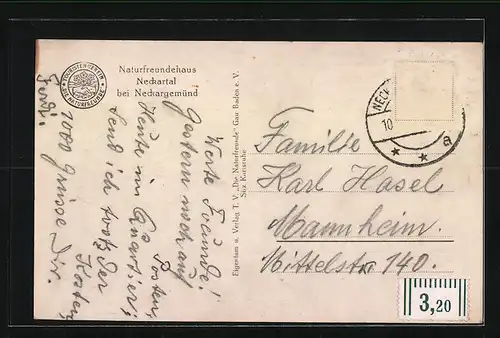 TOURISTENVEREIN
DIE NATURFREUNDE
Naturfreundehaus
Neckartal
bei Neckargemünd
Werte Freunde!
Gestern noch auf
Posten,
Heute im Quartier;
Send ich trotz der
Kosten,
1000 Grüsse Dir.
Ferdi.
Eigentum u. Verlag T. V. „Die Naturfreunde“ Gau Baden e. V.
Sitz Karlsruhe
NECK
10
a
Familie
Karl Hasel
Mannheim.
Mittelstr 140.
3,20